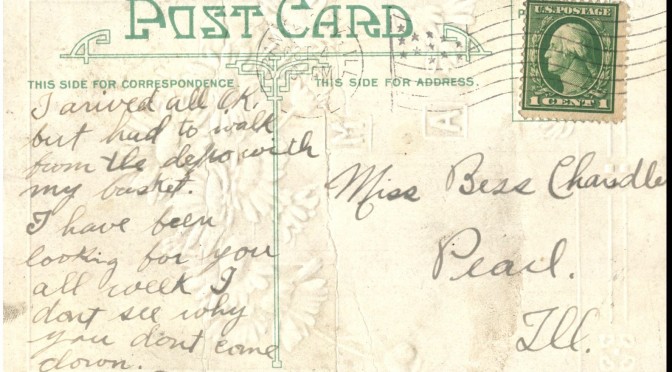 POST CARD
THIS SIDE FOR CORRESPONDENCE
THIS SIDE FOR ADDRESS.
U.S. POSTAGE
1 CENT 1
I arived all O.K.
but had to walk
from the depo with
my basket.
I have been
looking for you
all week I
dont see why
you dont come
down.
Miss Bess Chandle
Pearl.
Ill.